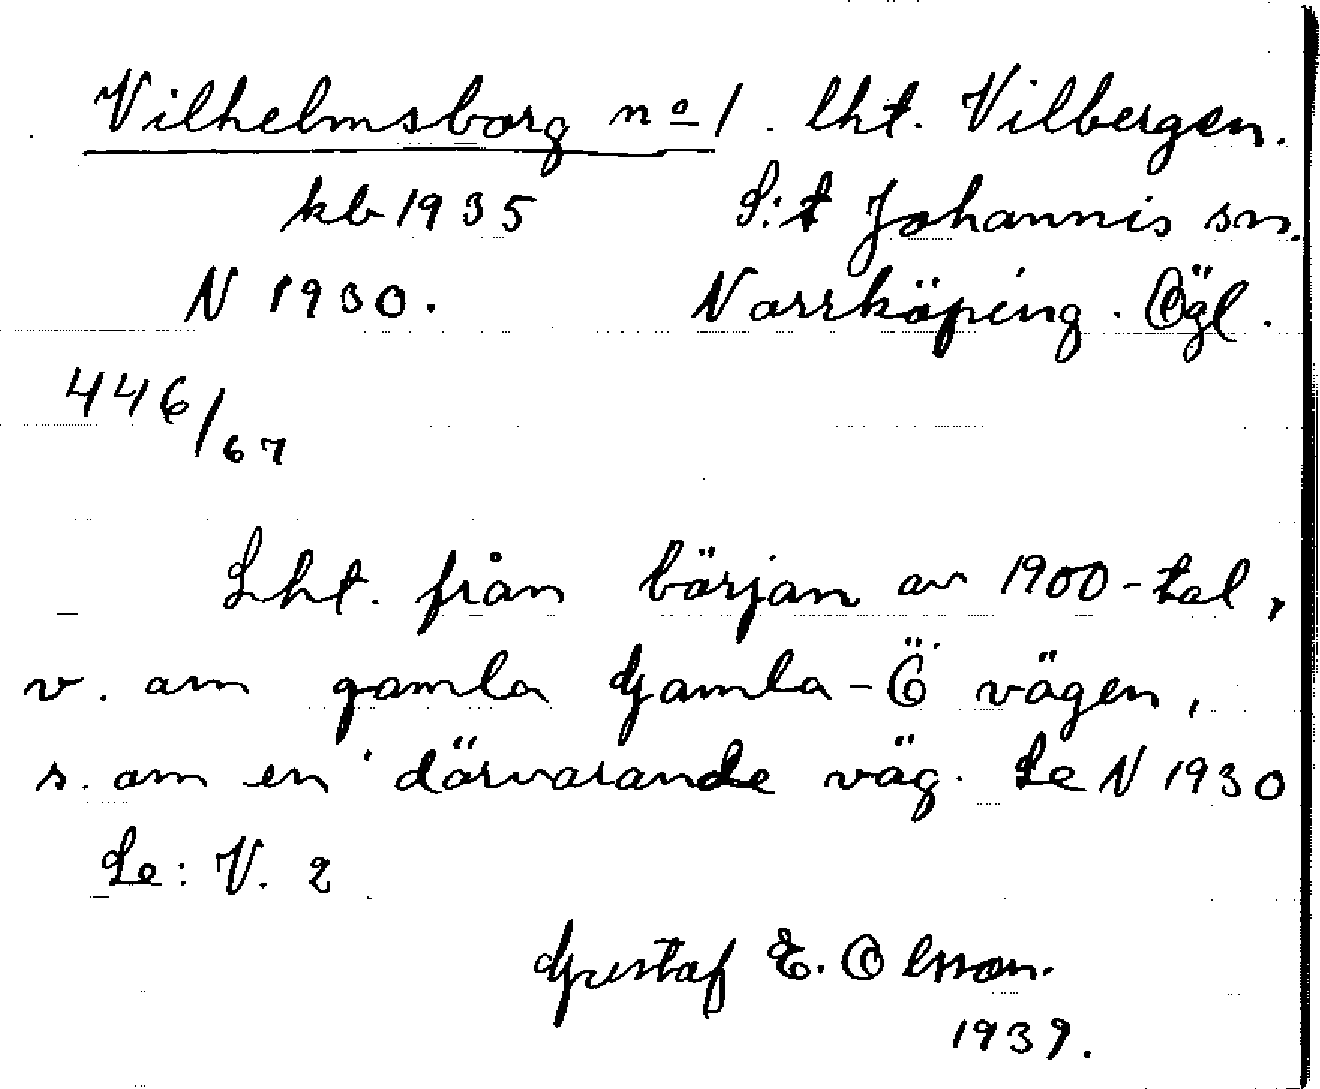 Vilhelmsborg no 1. lht. Vilbergen.
kb 1935 S:t Johannis sn.
N 1930. Norrköping. Ögl.
446/67
Lht. från början av 1900-tal,
v. om gamla Gamla-Ö vägen,
s. om en därvarande väg. Se N 1930
Se: V. 2
Gustaf E. Olsson.
1939.